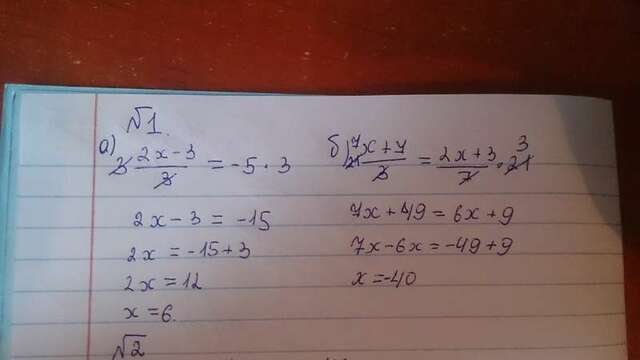 №1.
а) 3 (2x-3)/3 = -5·3
2x-3 = -15
2x = -15+3
2x = 12
x = 6.
б) 21 7 (x+7)/3 = (2x+3)/7 · 21 3
7x+49 = 6x+9
7x-6x = -49+9
x = -40
№2